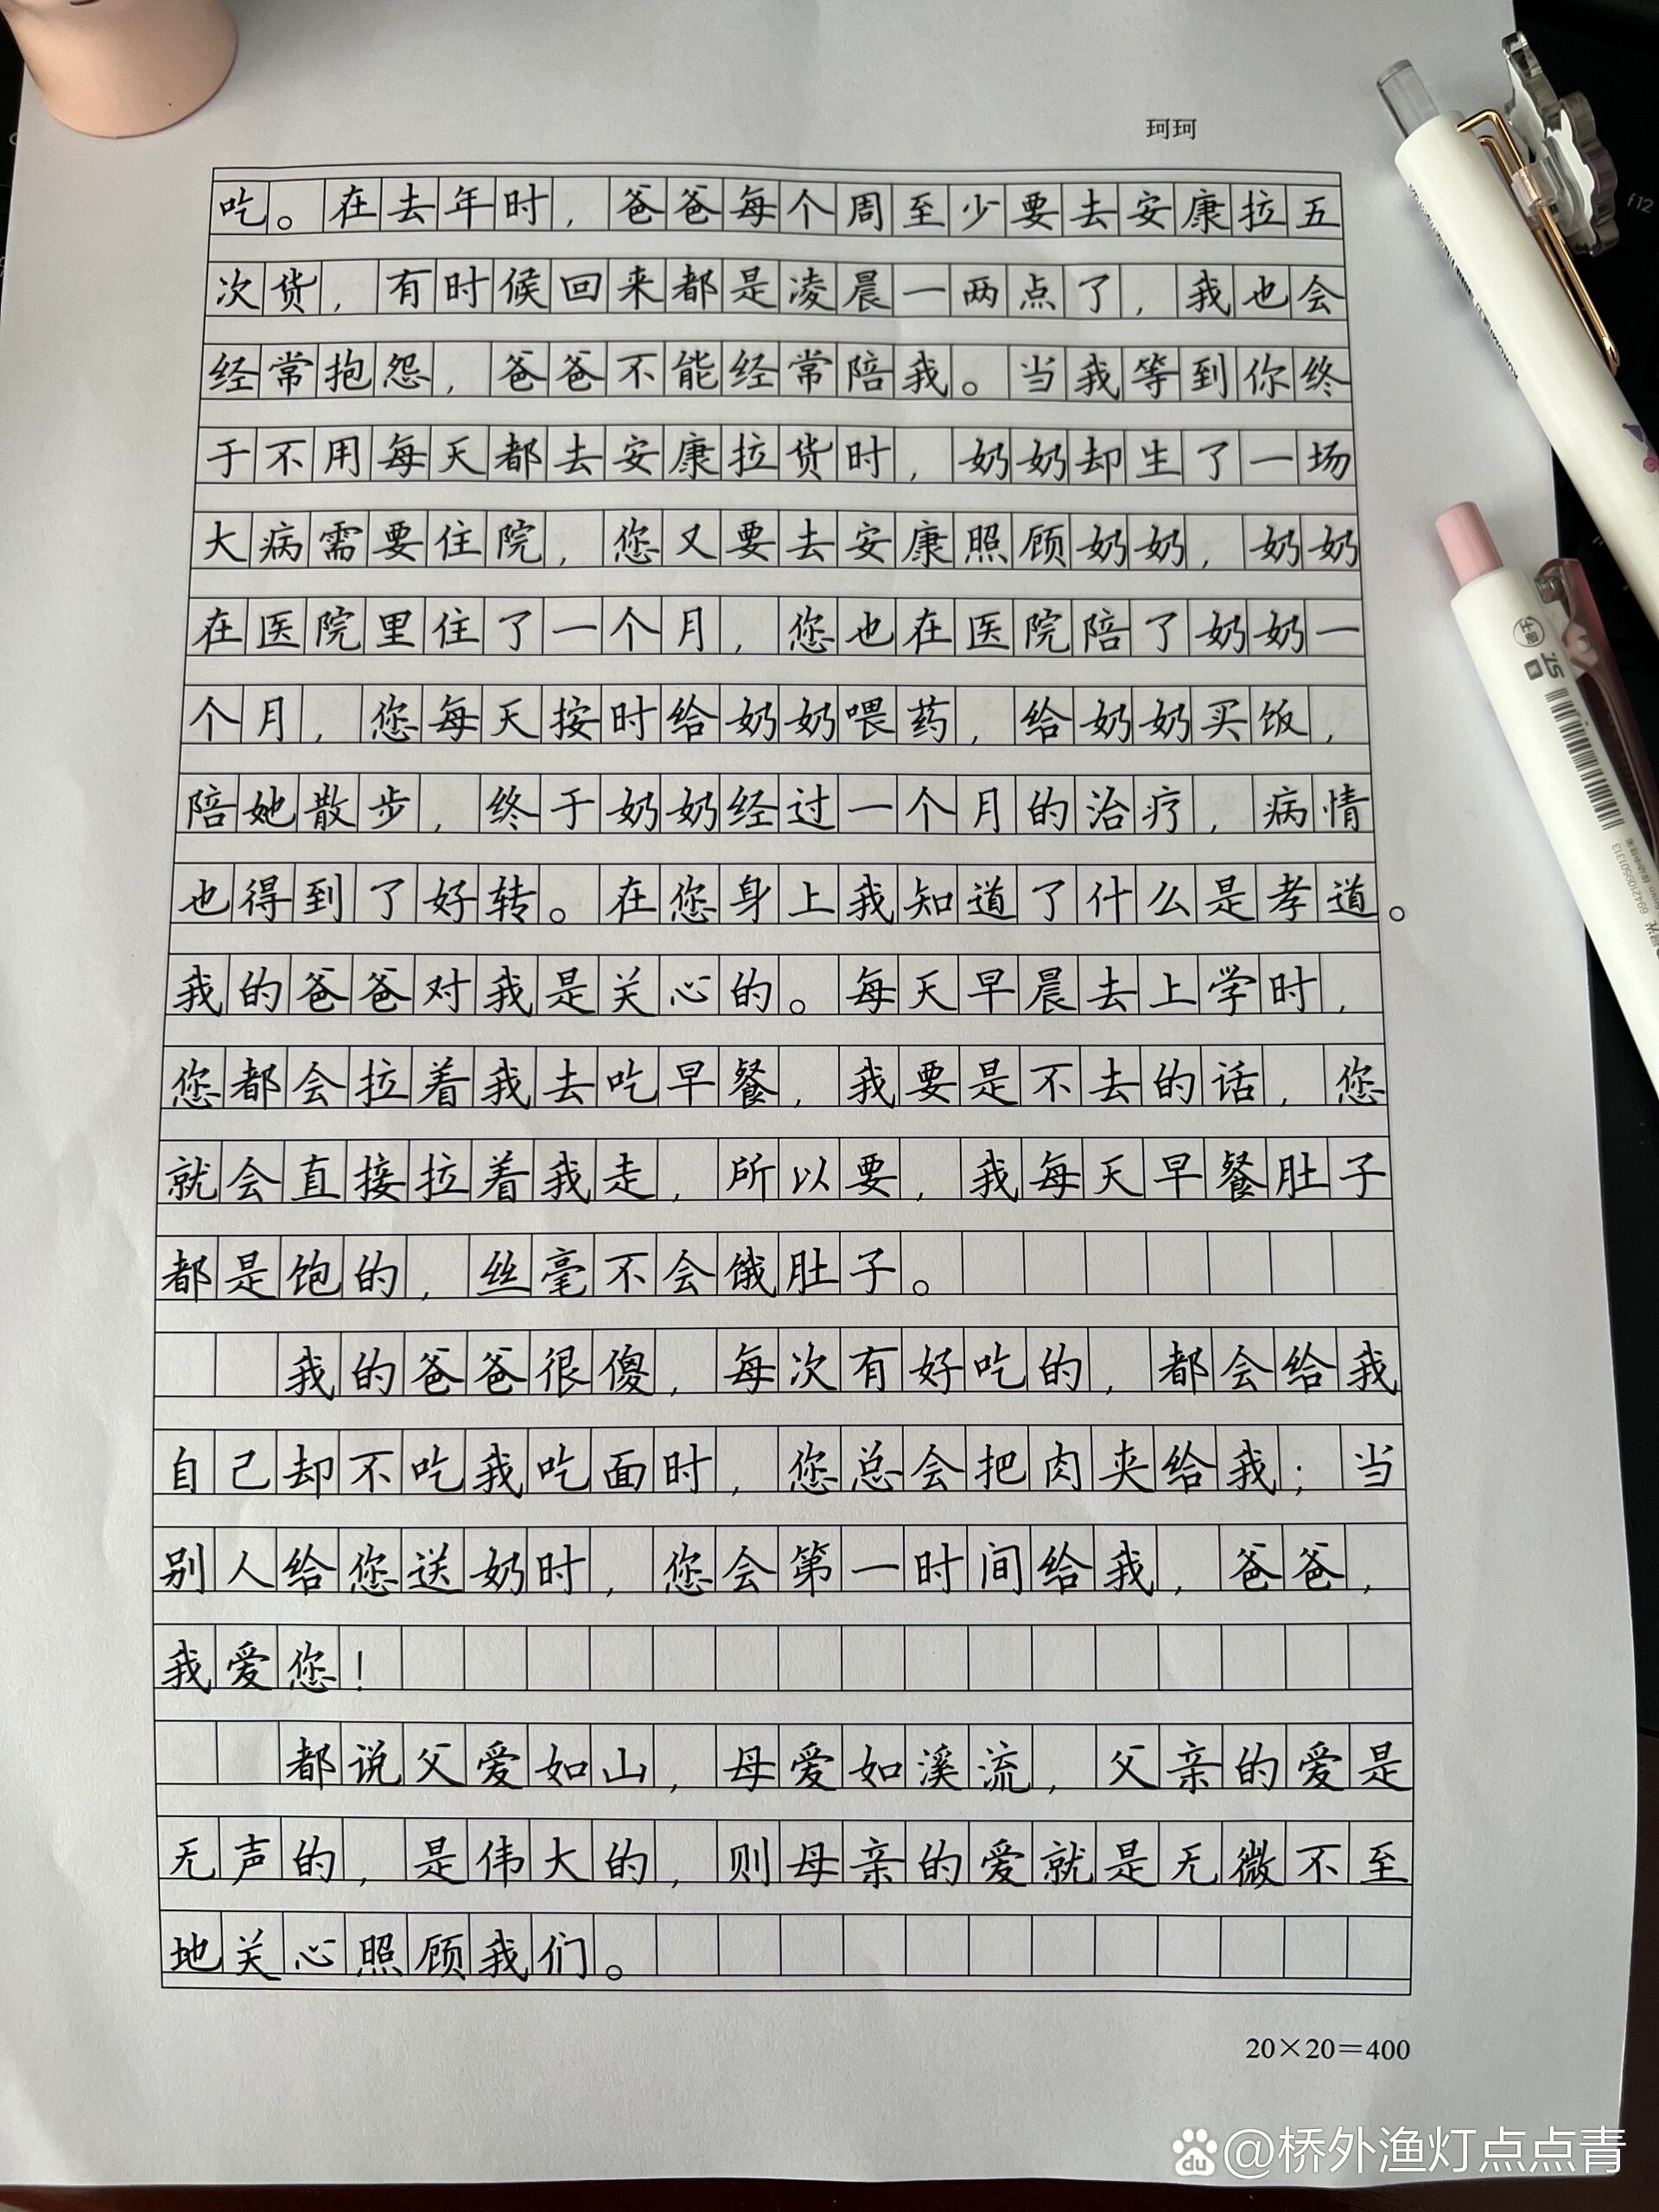 珂珂
吃。在去年时，爸爸每个周至少要去安康拉五
次货，有时候回来都是凌晨一两点了，我也会
经常抱怨，爸爸不能经常陪我。当我等到你终
于不用每天都去安康拉货时，奶奶却生了一场
大病需要住院，您又要去安康照顾奶奶，奶奶
在医院里住了一个月，您也在医院陪了奶奶一
个月，您每天按时给奶奶喂药，给奶奶买饭，
陪她散步，终于奶奶经过一个月的治疗，病情
也得到了好转。在您身上我知道了什么是孝道。
我的爸爸对我是关心的。每天早晨去上学时，
您都会拉着我去吃早餐，我要是不去的话，您
就会直接拉着我走，所以要，我每天早餐肚子
都是饱的，丝毫不会饿肚子。
我的爸爸很傻，每次有好吃的，都会给我
自己却不吃我吃面时，您总会把肉夹给我；当
别人给您送奶时，您会第一时间给我，爸爸，
我爱您！
都说父爱如山，母爱如溪流，父亲的爱是
无声的，是伟大的，则母亲的爱就是无微不至
地关心照顾我们。
20×20=400
f12
15
6942109501313
du @桥外渔灯点点青